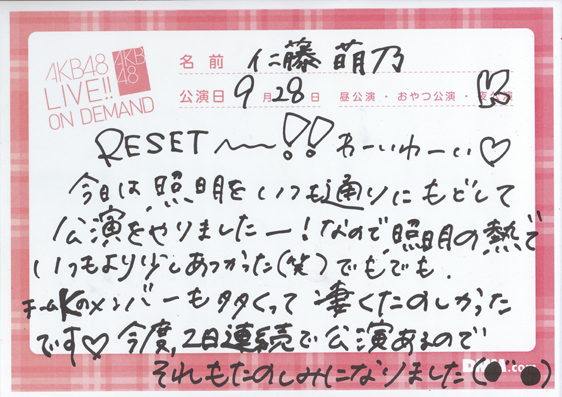 AKB48
LIVE!!
ON DEMAND
AKB
48
名前 仁藤萌乃
公演日 9月28日 昼公演・おやつ公演・夜公演
RESET〜〜!! わーいわーい♡
今日は、照明をいつも通りにもどして
公演をやりましたー!なので、照明の熱で
いつもより少しあつかった(笑)でもでも、
チームKのメンバーも多くって凄くたのしかった
です♡今度、2日連続で公演あるので
DMM.com
それもたのしみになりました(●¨●)